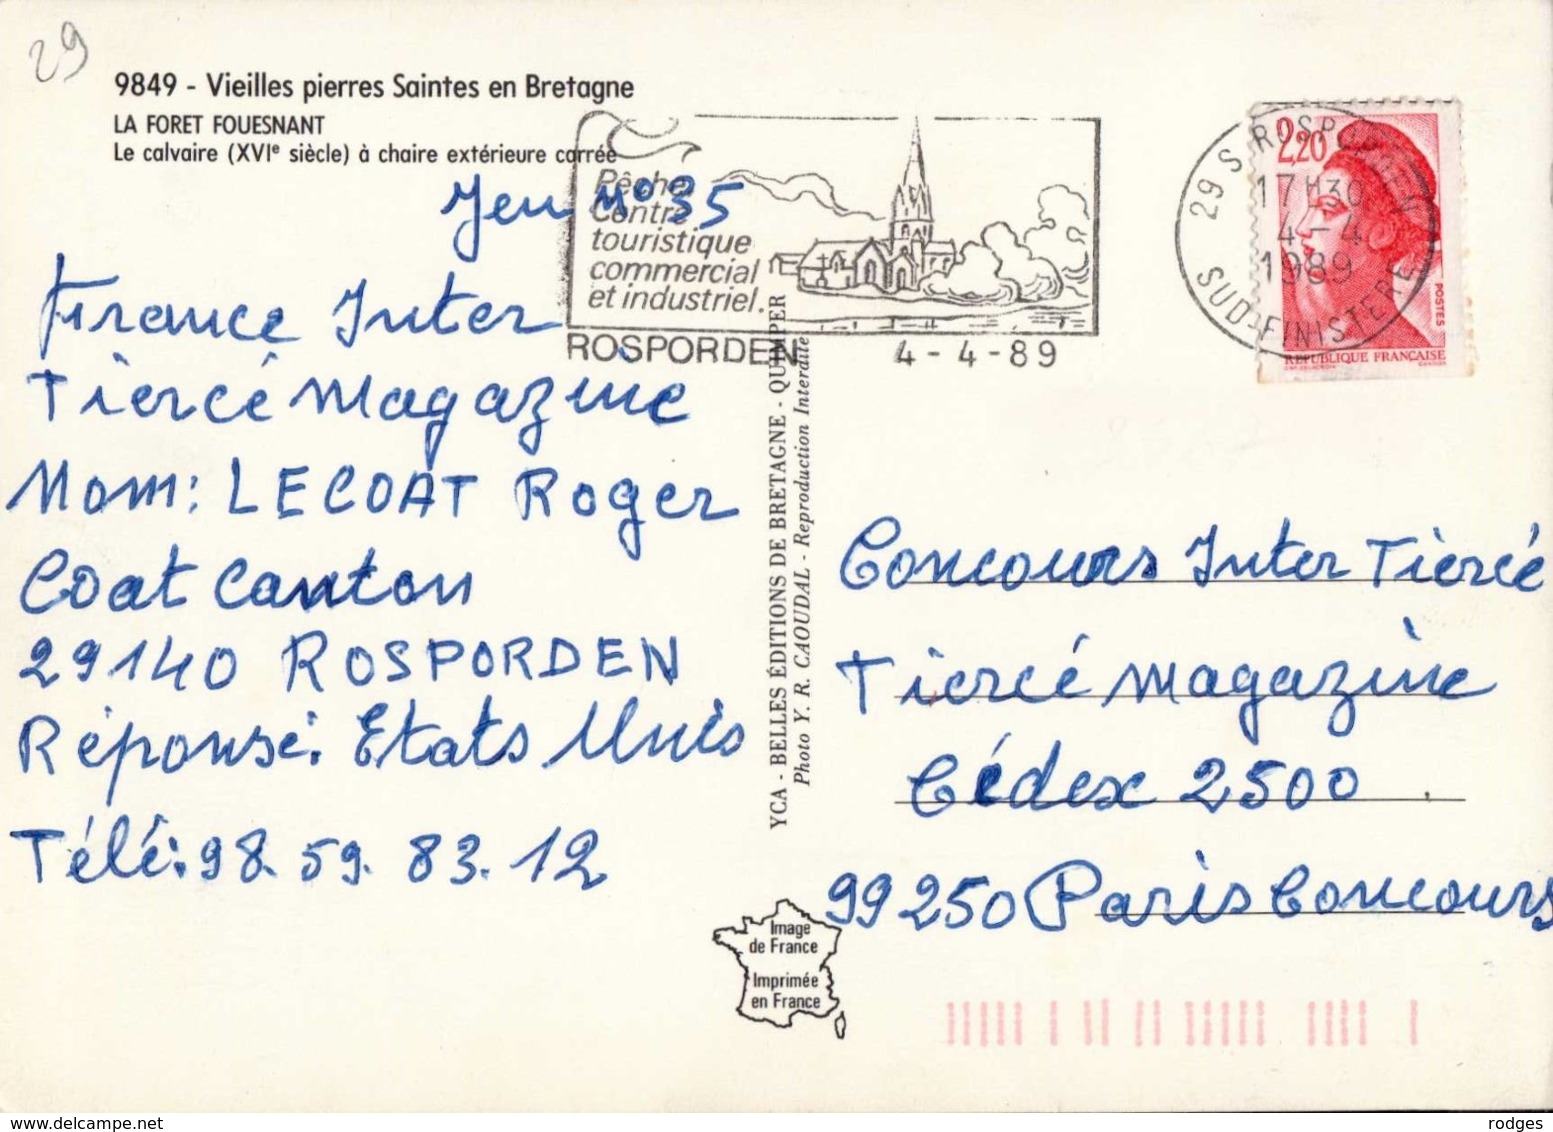 29
9849 - Vieilles pierres Saintes en Bretagne
LA FORET FOUESNANT
Le calvaire (XVIe siècle) à chaire extérieure carrée
Jeu No 35
France Inter
Tiercé Magazine
Nom: LECOAT Roger
Coat Canton
29140 ROSPORDEN
Réponse: Etats Unis
Télé: 98. 59. 83. 12
Pêche,
Centre
touristique
commercial
et industriel.
ROSPORDEN 4-4-89
29 S ROSPORDEN
17H30
4-4
1989
SUD-FINISTERE
2,20
POSTES
REPUBLIQUE FRANÇAISE
YCA - BELLES ÉDITIONS DE BRETAGNE - QUIMPER
Photo Y. R. CAOUDAL - Reproduction Interdite
Concours Inter Tiercé
Tiercé Magazine
Cédex 2500
99250 Paris Concours
Image
de France
Imprimée
en France
delcampe.net
rodges